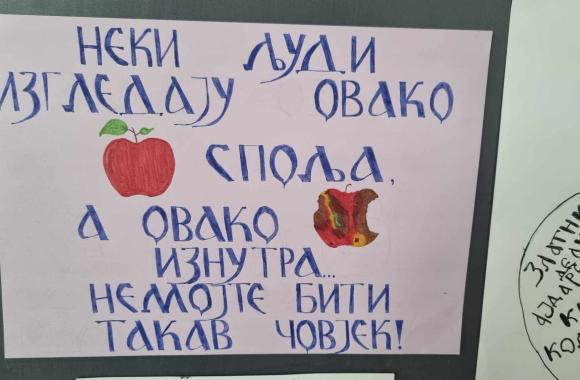 НЕКИ ЉУДИ
ИЗГЛЕДАЈУ ОВАКО
СПОЉА,
А ОВАКО
ИЗНУТРА...
НЕМОЈТЕ БИТИ
ТАКАВ ЧОВЈЕК!